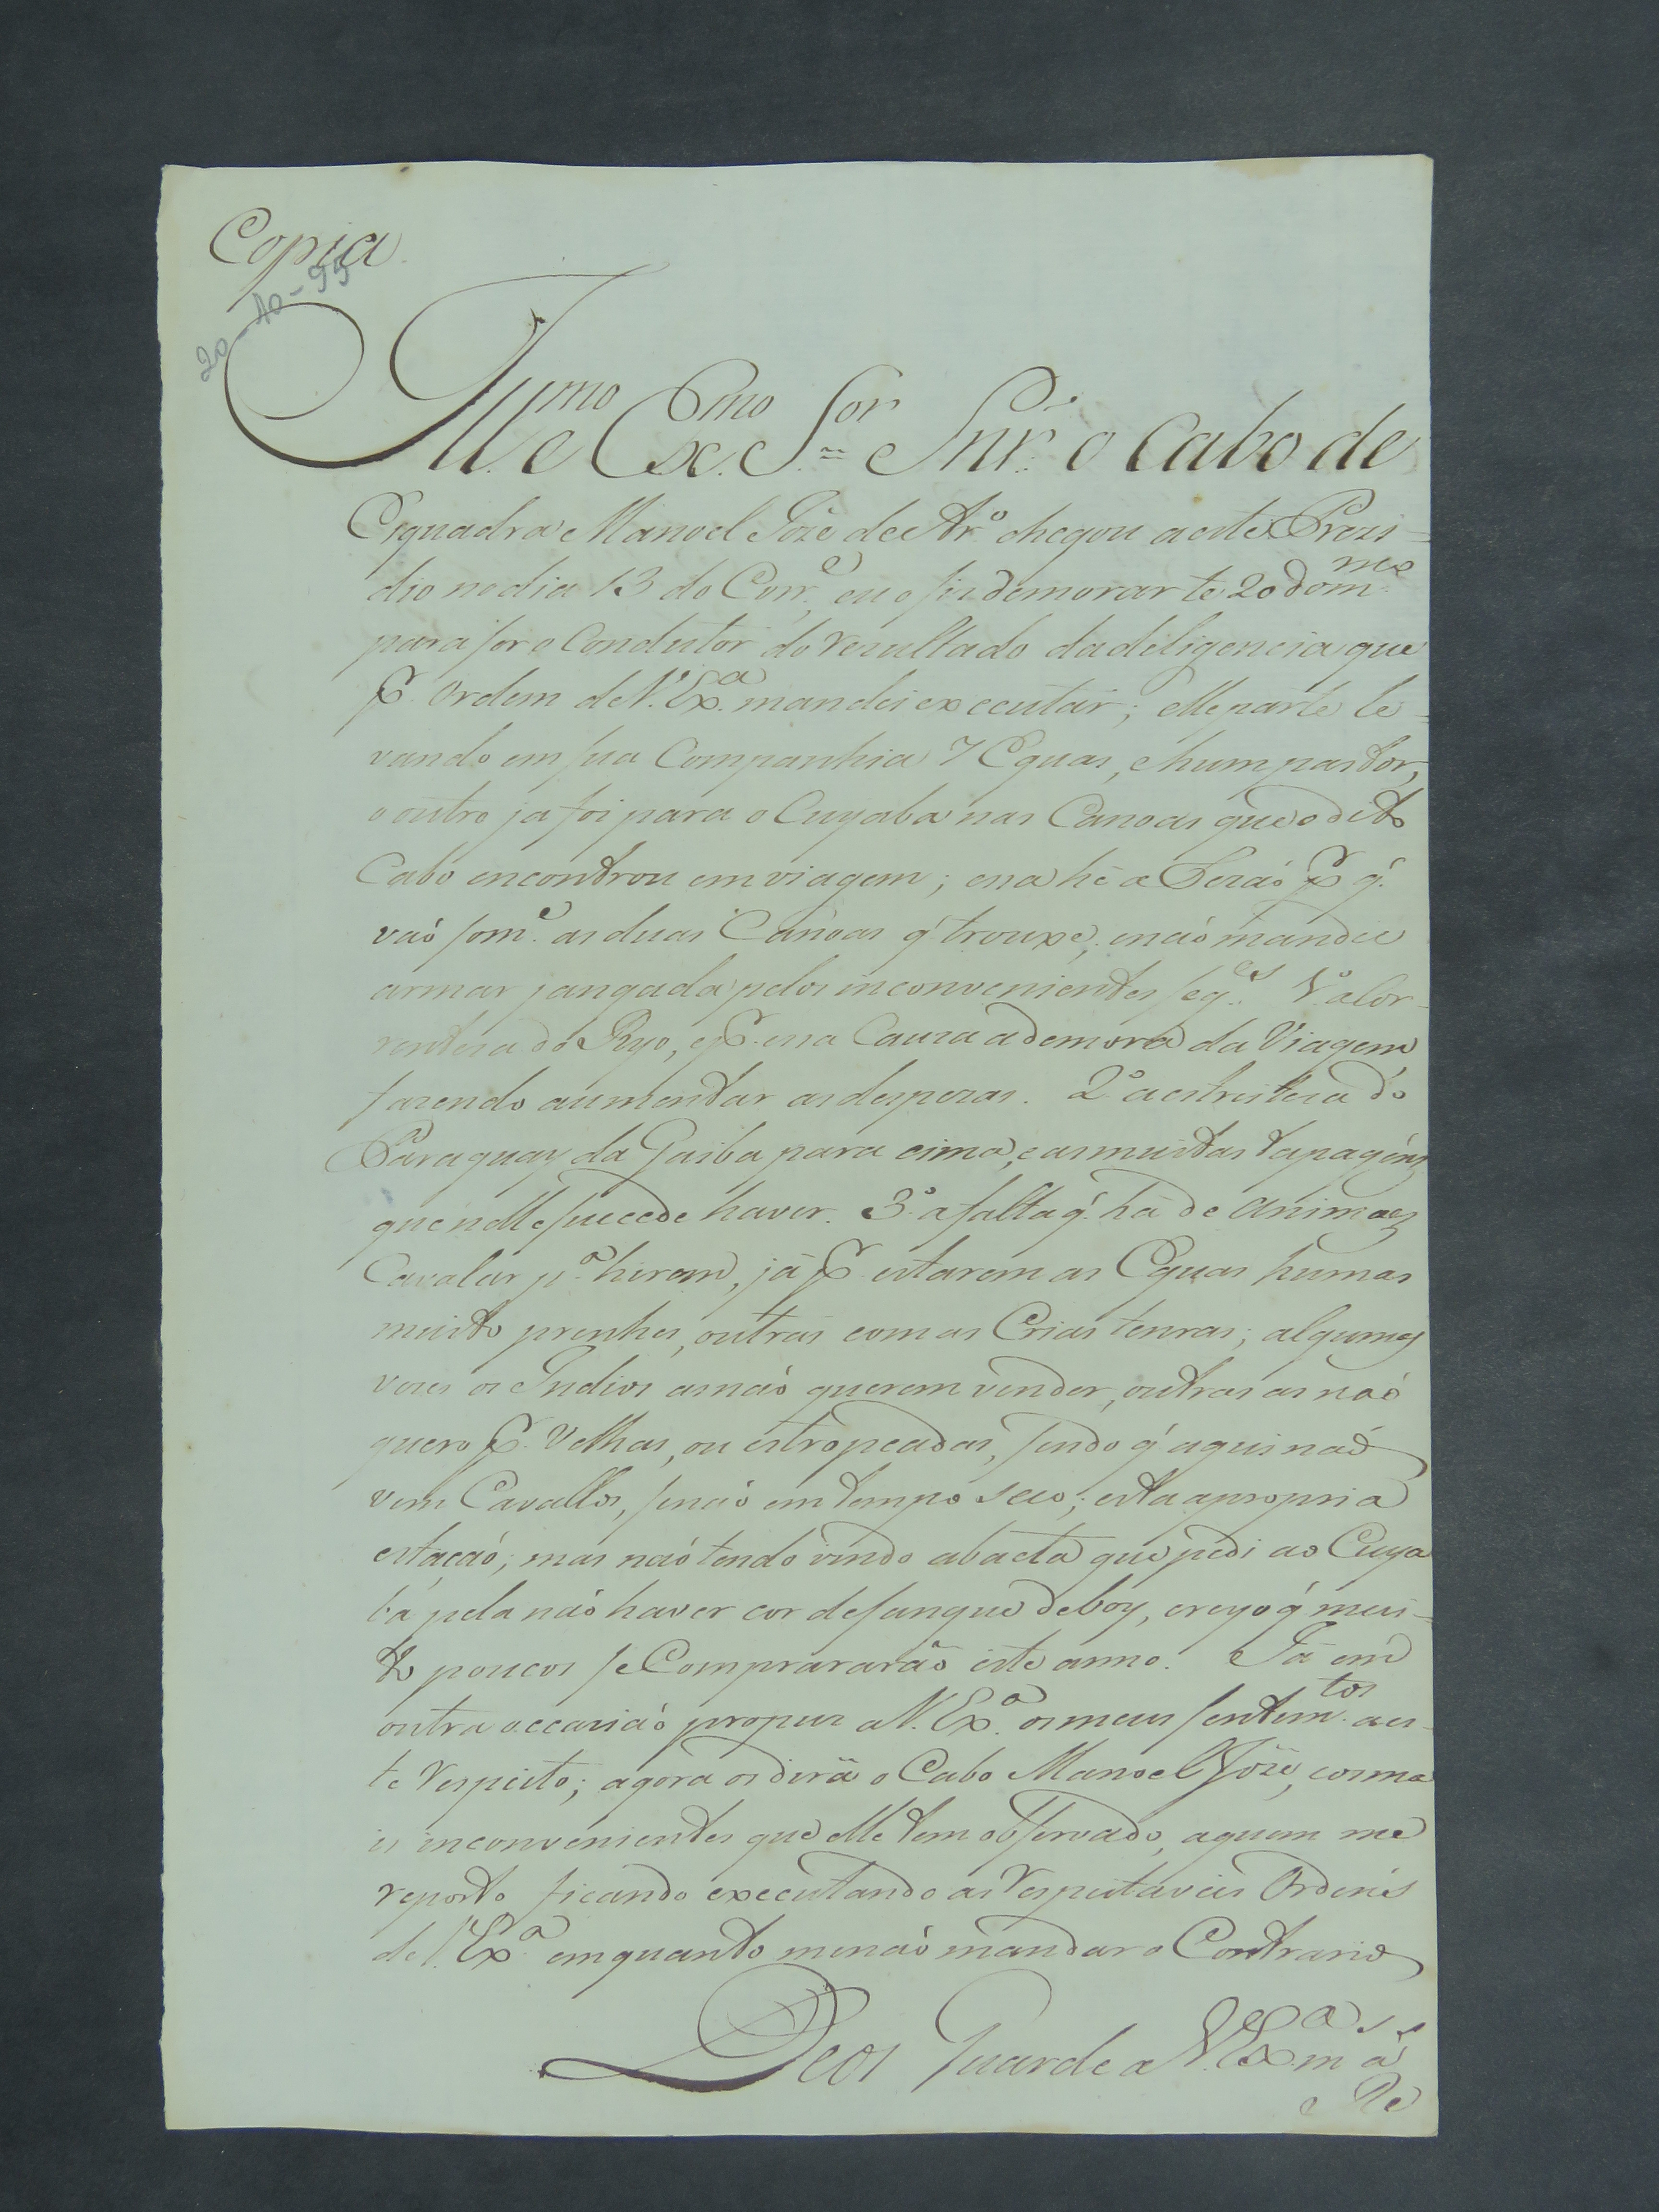 Copia
20-10-95
Ill.mo e Ex.mo S.or Snr. o Cabo de
Esquadra Manoel Joze de Ar.o chegou a este Prezi-
dio no dia 13 do Corr.e, eu o fiz demorar te 20 do m.mo
para ser o Condutor do rezultado da deligencia que
P. Ordem de V. Ex.a mandei executar; elle parte le-
vando em sua Companhia 7 Eguas, e hum pastor,
o outro ja foi para o Cuyaba nas Canoas que o dito
Cabo encontrou em viagem; essa hé a Rezaó P. q.
vaó som.e as duas Canoas q' trouxe, e naó mandei
armar jangada pelos inconvenientes seg.es 1.o a Cor-
renteza do Ryo, e P. essa Cauza a demora da Viagem
fazendo aumentar as despezas. 2.o a estreiteza do
Paraguay da Gaiba para cima, e as muitas tapagéns
que nelle sucede haver. 3.o a falta q. há de animaes
Cavalar p.a hirem, já P. estarem as Eguas humas
muito prenhes, outras com as Crias ténras; algumas
vezes os Indios as naó querem vender, outras as naó
quero P. Velhas, ou estropeadas, sendo q' aqui naó
vem Cavallos, senaó em tempo seco; esta a propria
estaçaó; mas naó tendo vindo a baeta que pedi ao Cuya
bá pela naó haver cor de sangue de boy, creyo q' mui-
to poucos se Comprararáo este anno. Já em
outra occaziaó propuz a V. Ex.a os meus sentim.tos a es-
te respeito; agora os dirá o Cabo Manoel Joze, e os ma
is inconvenientes que elle tem observado, a quem me
reporto ficando executando as respeitaveis Ordens
de V. Ex.a em quanto me naó mandar o Contrario
Deos Guarde a V. Ex.a m.s a.s
Re